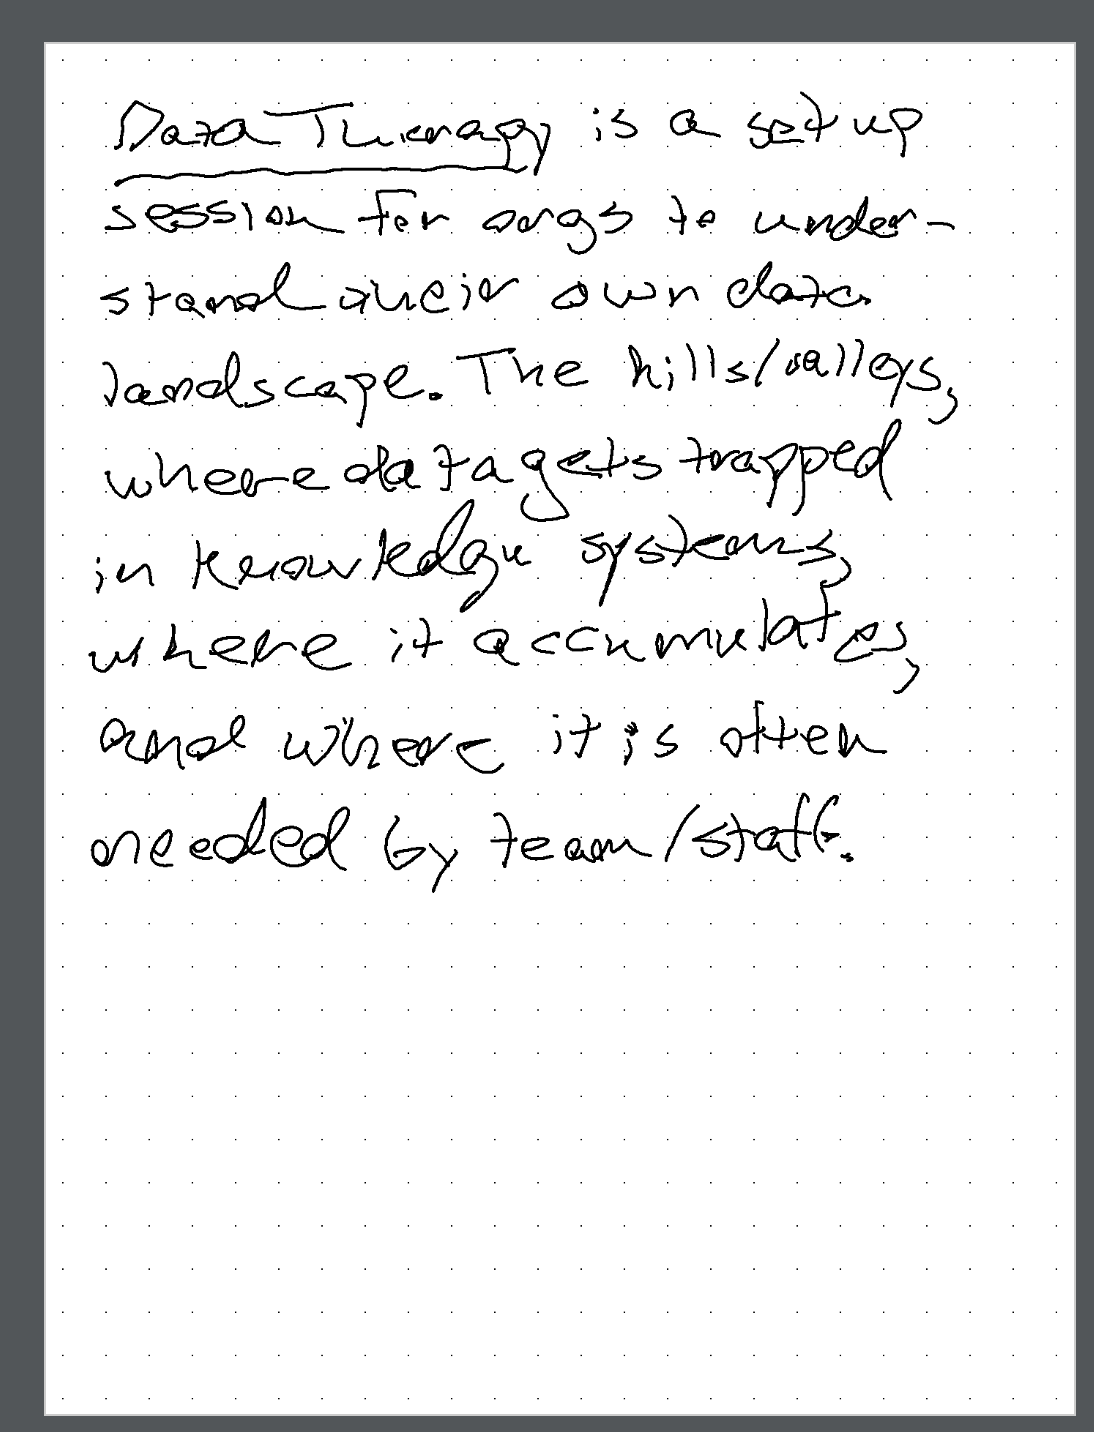 Data Therapy is a set up
session for orgs to under-
stand their own data
landscape. The hills/valleys,
where data gets trapped
in knowledge systems,
where it accumulates,
and where it is often
needed by team/staff.